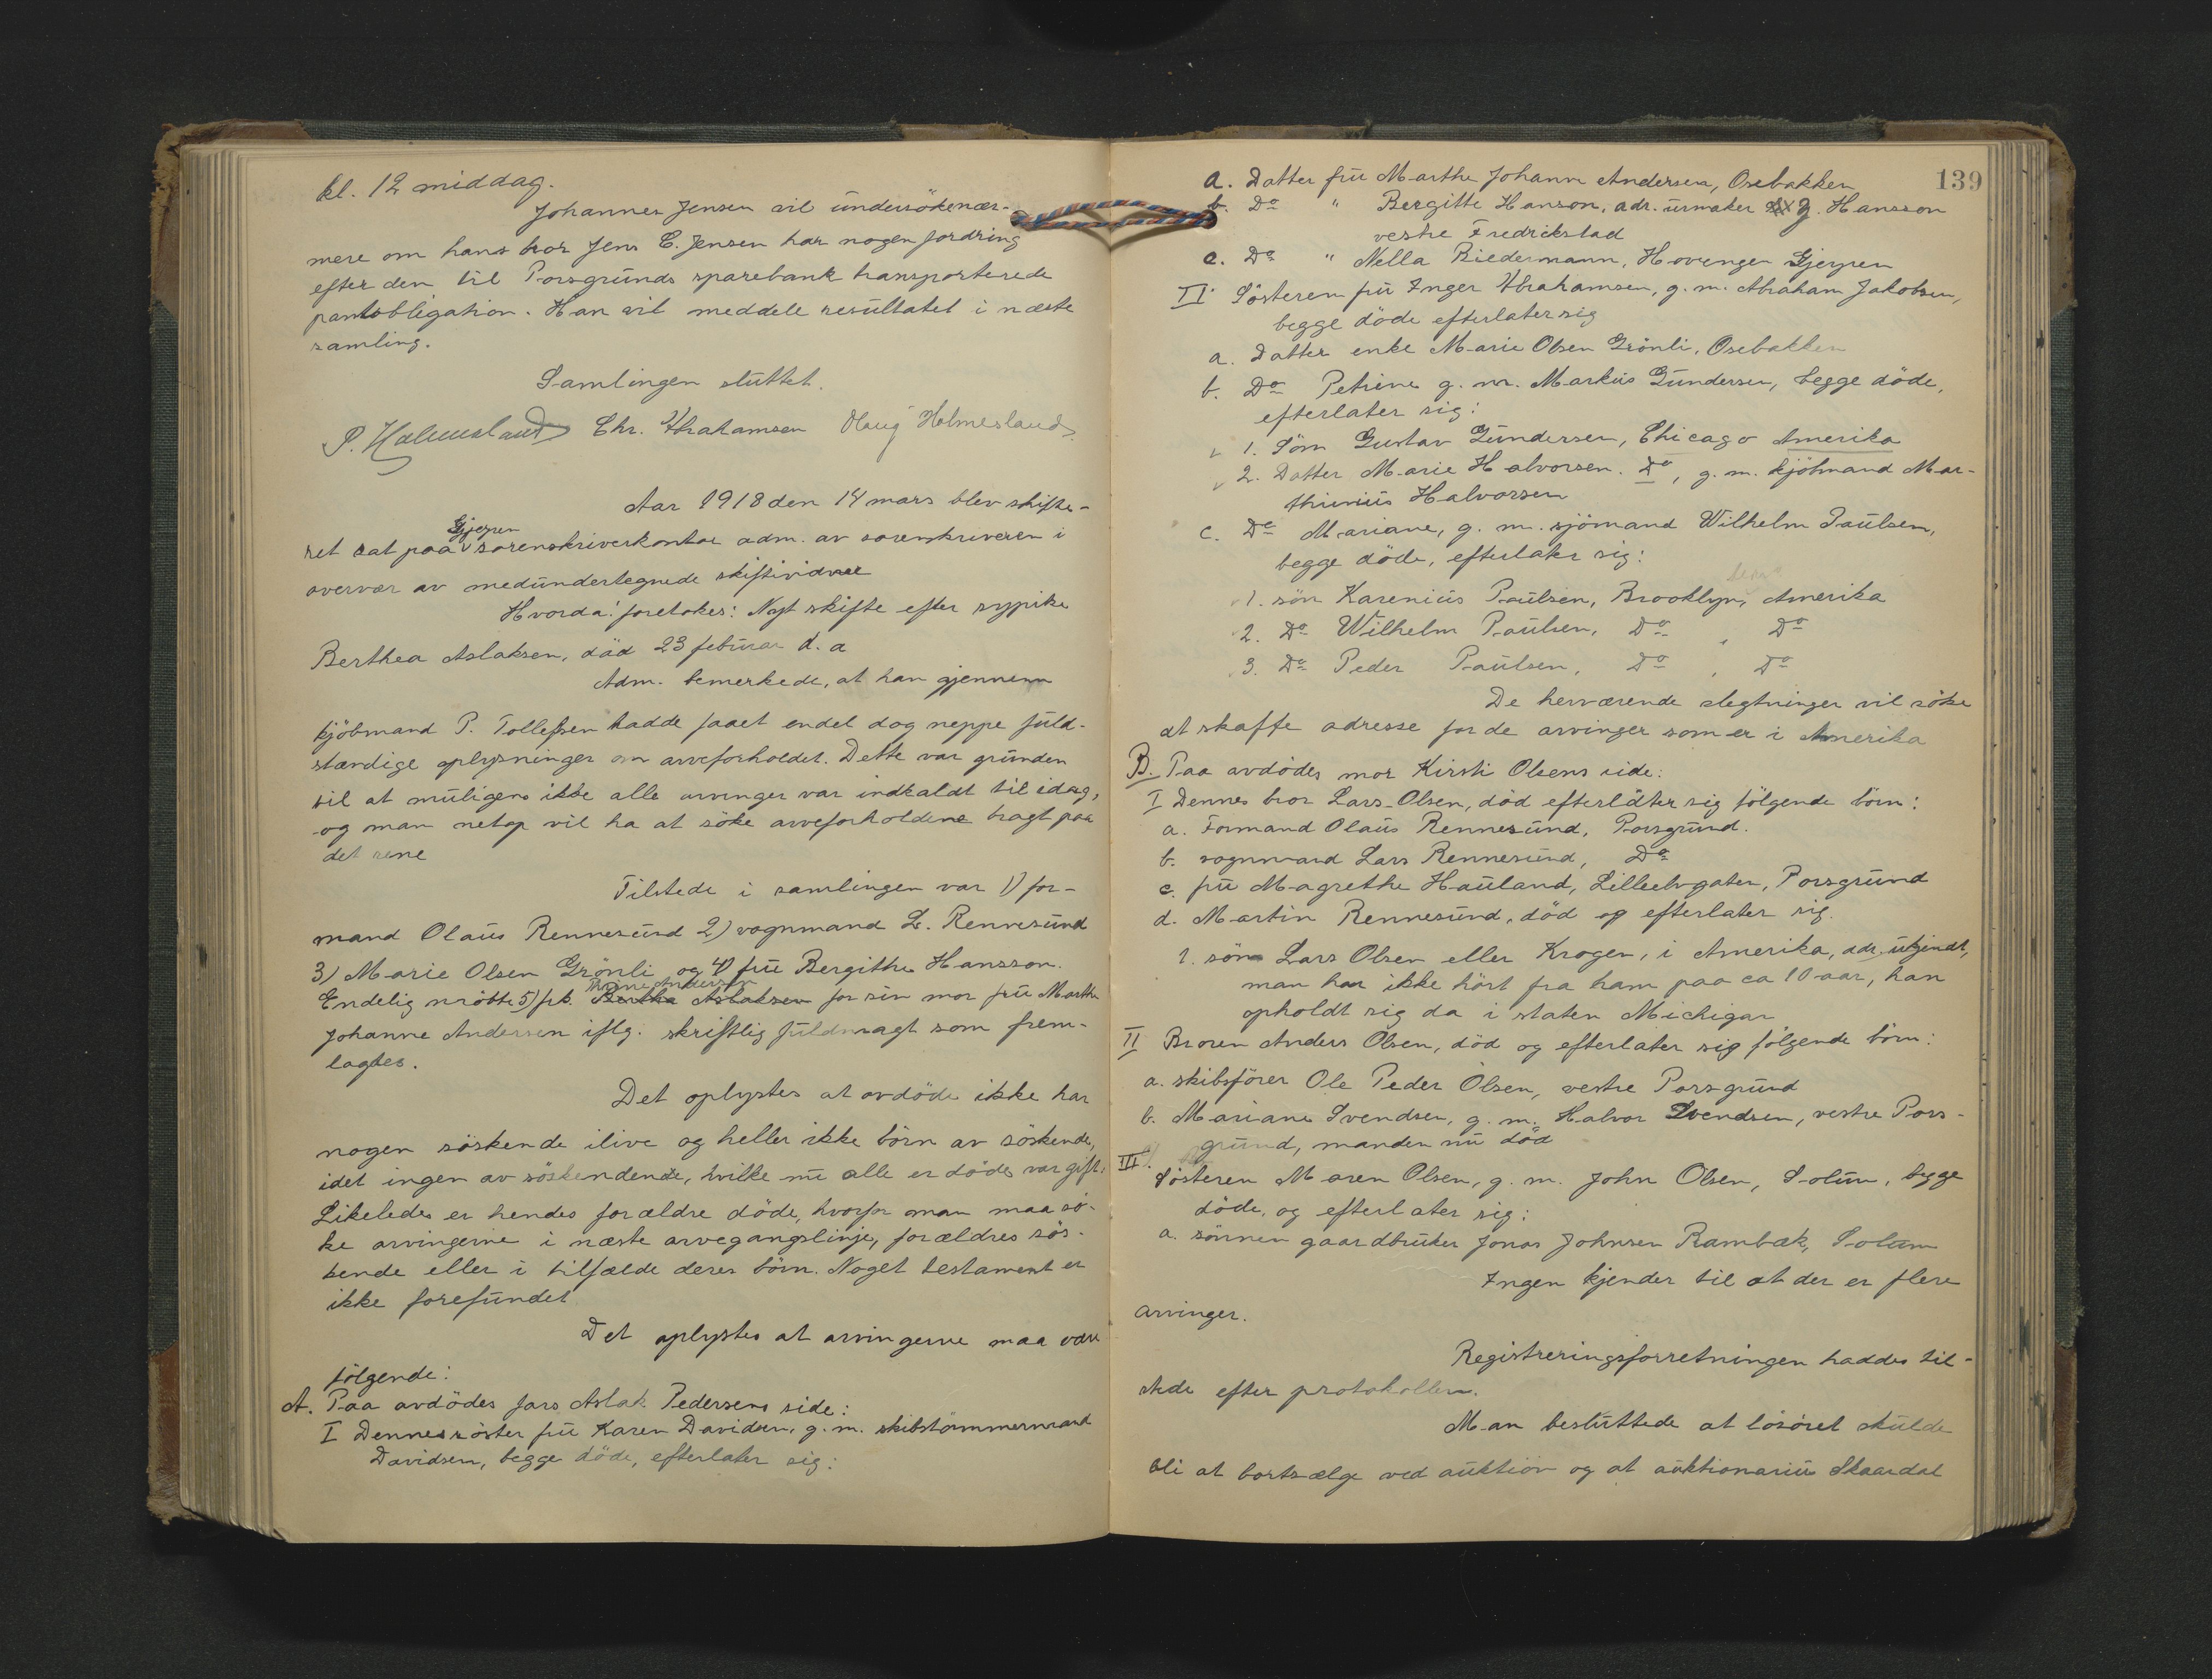 kl. 12 middag.
Johannes Jensen vil undersöke nær-
mere om hans bror Jens C. Jensen har nogen fordring
efter den til Porsgrunds sparebank transporterede
pantobligation. Han vil meddele resultatet i næste
samling.
Samlingen sluttet.
P. Holmesland Chr. Abrahamsen Olaug Holmesland.
Aar 1918 den 14 mars blev skifte-
Gjerpen
ret sat paa v sorenskriverkontor adm. av sorenskriveren i
overvær av medundertegnede skiftividner
Hvorda: foretokes: Nyt skifte efter sypike
Berthea Aslaksen, död 23 februar d. a
Adm. bemerkede, at han gjennem
kjöbmand P. Tollefsen hadde faaet endel dog neppe fuld-
stændige oplysninger om arveforholdet. Dette var grunden
til at muligens ikke alle arvinger var indkaldt til idag,
og man netop vil ha at söke arveforholdene bragt paa
det rene
Tilstede i samlingen var 1) for-
mand Olaus Rennesund 2) vognmand L. Rennesund
3) Marie Olsen Grönli og 4) fru Bergithe Hansson.
Thrine Andersen
Endelig mötte 5) frk. Bertha Aslaksen for sin mor fru Marthe
Johanne Andersen iflg. skriftlig fuldmagt som frem-
lagdes.
Det oplystes at avdöde ikke har
nogen söskende ilive og heller ikke börn av söskende,
idet ingen av söskendende, hvilke nu alle er döde var gift.
Likeledes er hendes forældre döde, hvorfor man maa sö-
ke arvingerne i næste arvegangslinje, forældres sös-
kende eller i tilfælde deres börn. Noget testament er
ikke forefundet
Det oplystes at arvingerne maa være
følgende:
A. Paa avdödes fars Aslak Pedersens side:
I Dennes söster fru Karen Davidsen, g. m. skibstömmermand
Davidsen, begge döde, efterlater sig:
139
a. Datter fru Marthe Johanne Andersen, Osebakken
b. Do " Bergitte Hanson, adr. urmaker J. Hansson
vestre Fredrikstad
c. Do " Nella Biedermann, Hovenga Gjerpen
II. Sösteren fru Inger Abrahamsen, g. m. Abraham Jakobsen,
begge döde efterlater sig
a. Datter enke Marie Olsen Grönli, Osebakken
b. Do Petrine g. m. Markus Gundersen, begge döde,
efterlater sig:
1. Sön Gustav Gundersen, Chicago Amerika
2. Datter Marie Halvorsen. Do, g. m. kjöbmand Mar-
thinius Halvorsen
c. Do Mariane, g. m. sjömand Wilhelm Paulsen,
begge döde, efterlater sig:
1. sön Karenius Paulsen, Brooklyn, Amerika
2. Do Wilhelm Paulsen, Do , Do
3. Do Peder Paulsen, Do , Do
De herværende slegtninger vil söke
at skaffe adresse for de arvinger som er i Amerika
B. Paa avdödes mor Kirsti Olsens side:
I Dennes bror Lars Olsen, död efterlater sig fölgende börn:
a. Formand Olaus Rennesund, Porsgrund.
b. vognmand Lars Rennesund, Do
c. fru Magrethe Hauland, Lilleelvgaten, Porsgrund
d. Martin Rennesund, död og efterlater sig.
1. sön Lars Olsen eller Krogen, i Amerika, adr. ukjendt,
man har ikke hört fra ham paa ca 10 aar, han
opholdt sig da i staten Michigan
II Broren Anders Olsen, död og efterlater sig fölgende börn:
a. skibsförer Ole Peder Olsen, vestre Porsgrund
b. Mariane Svendsen, g. m. Halvor Svendsen, vestre Pors-
grund, manden nu död
III.
Sösteren Maren Olsen, g. m. John Olsen, Solum, begge
döde, og efterlater sig:
a. sönnen gaardbruker Jonas Johnsen Rambæk, Solum
Ingen kjender til at der er flere
arvinger.
Registreringsforretningen haddes til-
stede efter protokollen.
Man besluttede at lösöret skulde
bli at bortsælge ved auktion og at auktionarius Skaardal